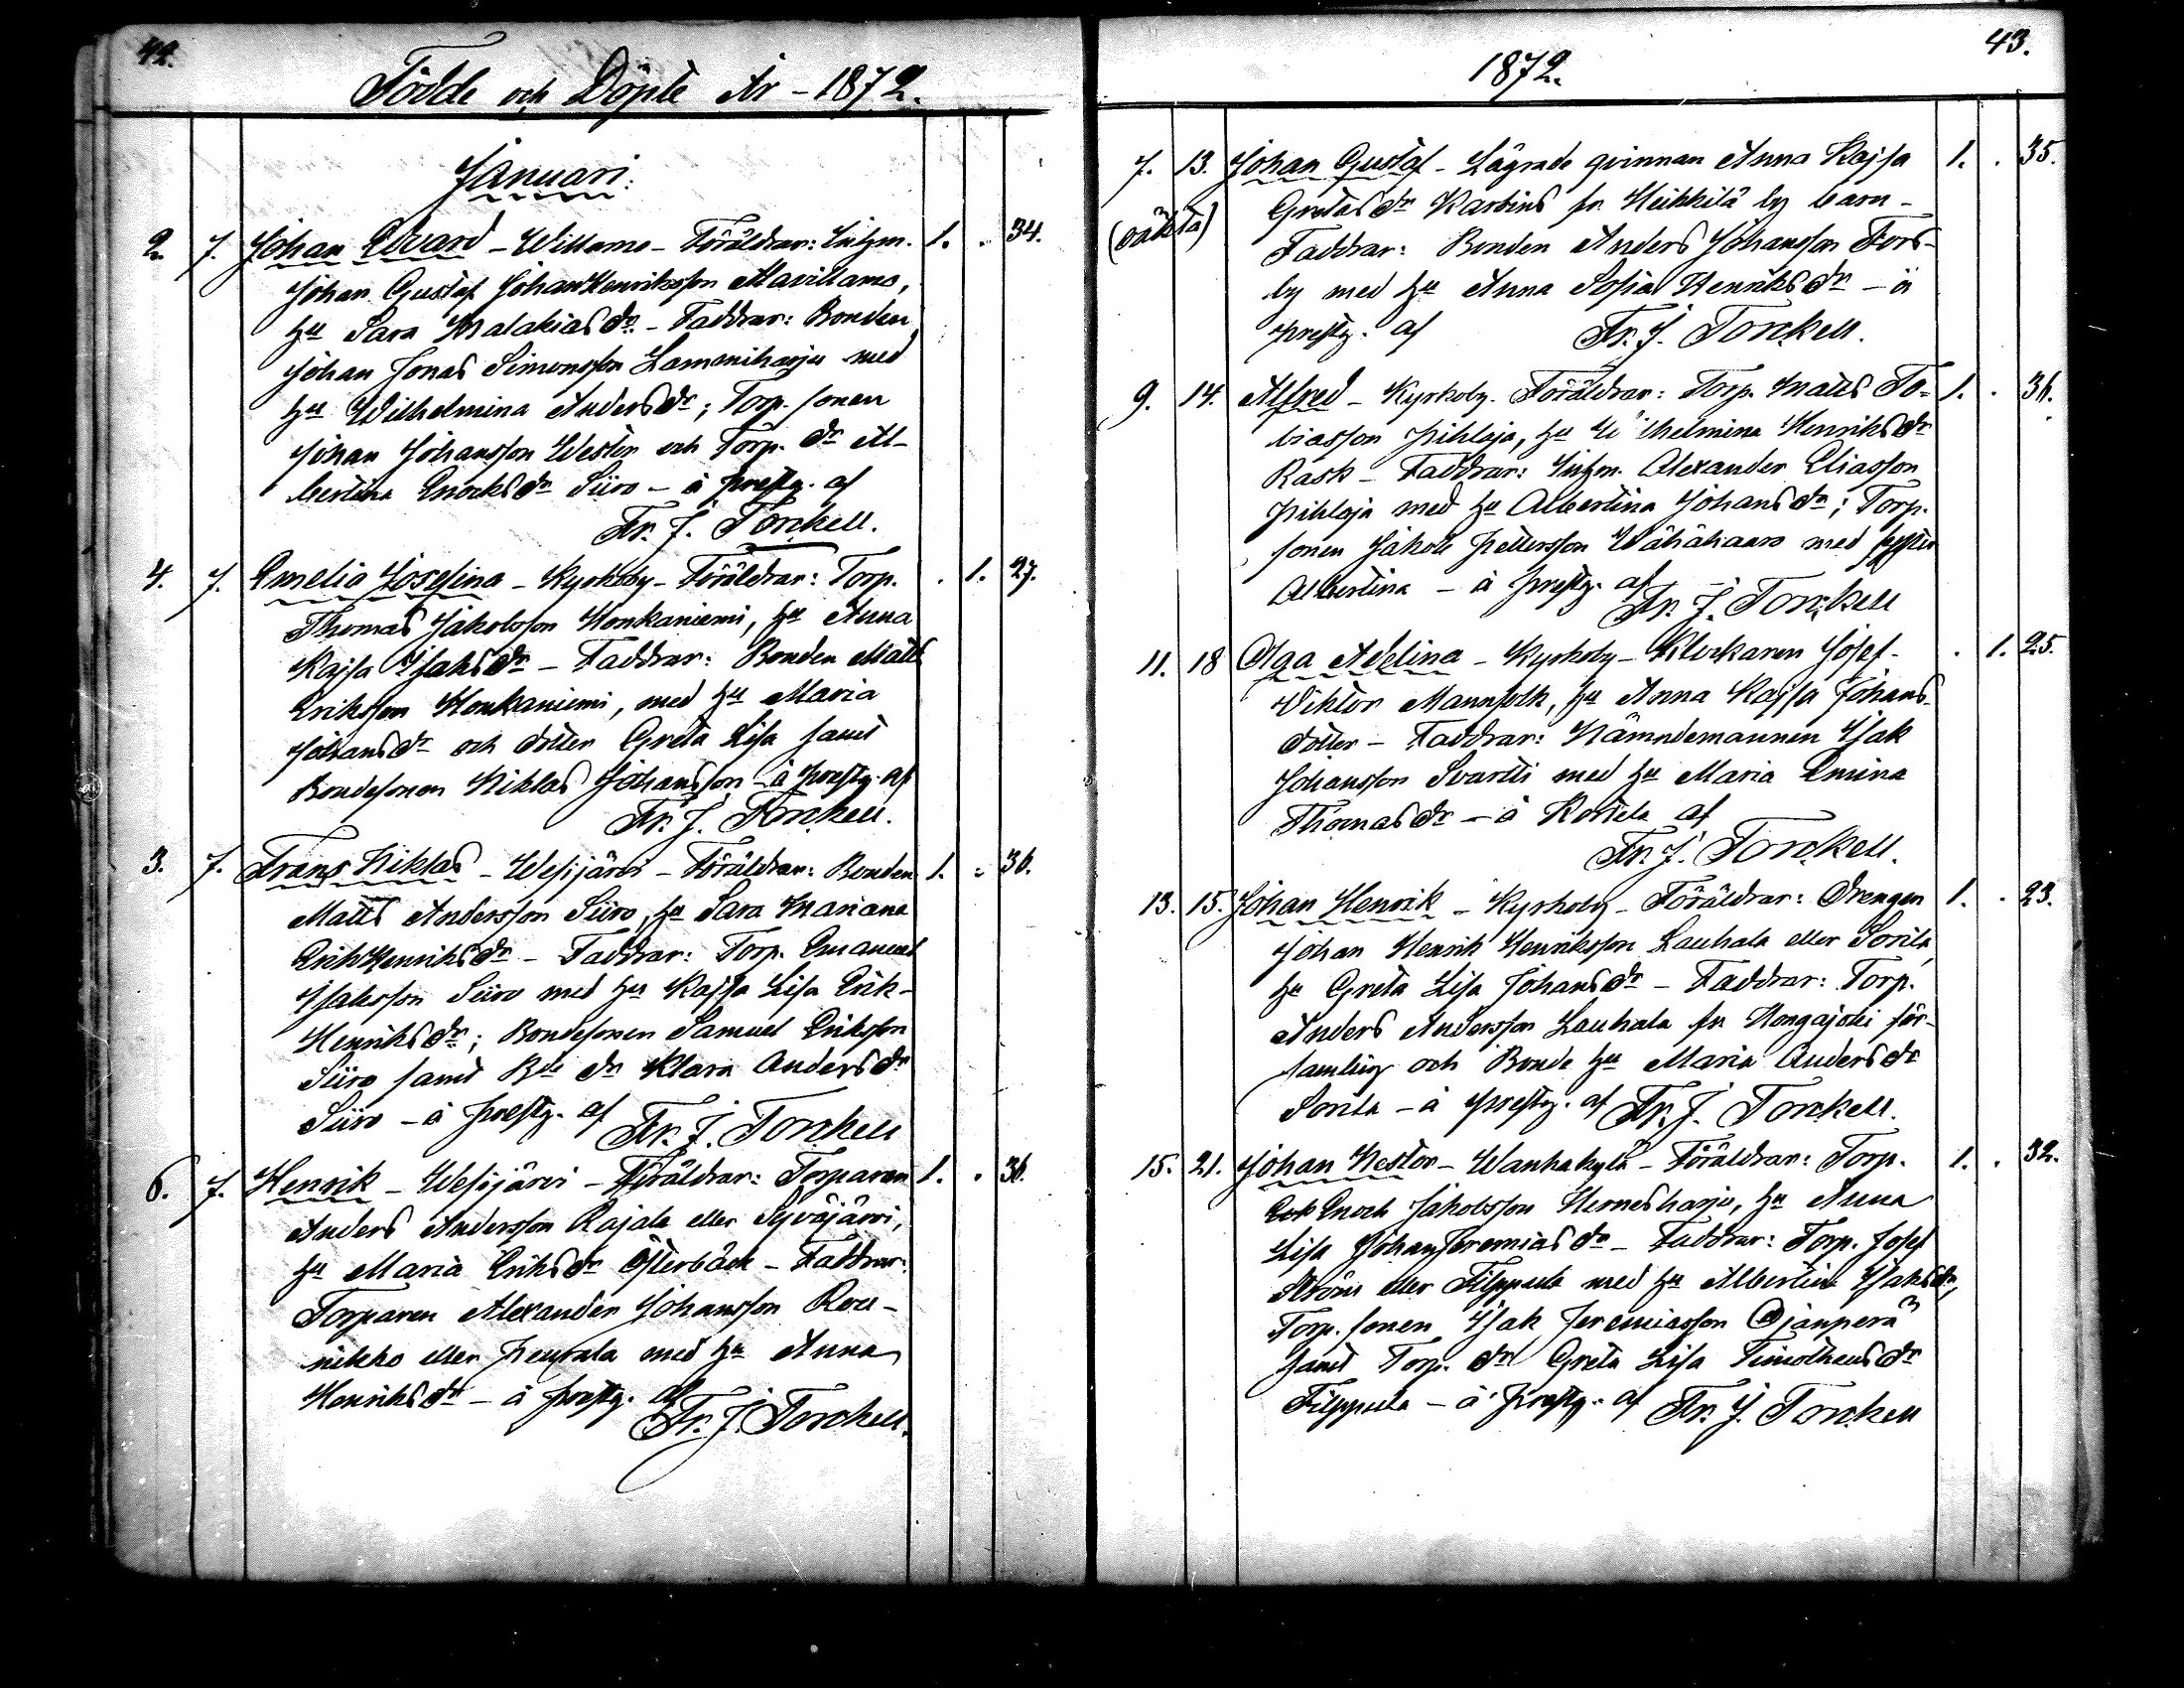 42.
Födde och Döpte År - 1872.
Januari:
2. 7. Johan Edvard - Willamo - Föräldrar: Inhys. 1. . 34.
Johan Gustaf Johan Henriksson Alavillamo,
hu Sara Malakias dr. - Faddrar: Bonden
Johan Jonas Simonsson Lamminharju med
hu Wilhelmina Anders dr; Torp. sonen
Johan Johansson Westin och Torp. dr Al-
bertina Enocks dr Siiro - å prestg. af
Fr. J. Torckell.
4. 7. Emelia Josefina - Kyrkoby - Föräldrar: Torp. . 1. 27.
Thomas Jakobsson Honkaniemi, hu Anna
Kajsa Isaks dr - Faddrar: Bonden Matts
Eriksson Honkaniemi, med hu Maria
Johans dr och dotter Greta Lisa samt
Bondesonen Niklas Johansson - å prestg. af
Fr. J. Torckell.
3. 7. Frans Niklas - Wesijärvi - Föräldrar: Bonden 1. . 36.
Matts Andersson Siiro, hu Sara Mariana
Erik Henriks dr - Faddrar: Torp. Emanuel
Isaksson Siiro med hu Kajsa Lisa Erik-
Henriks dr; Bondesonen Samuel Eriksson
Siiro samt Bde dr Klara Anders dr
Siiro - å prestg. af Fr. J. Torckell
6. 7. Henrik - Wesijärvi - Föräldrar: Torparen 1. . 36.
Anders Andersson Rajala eller Syväjärvi,
hu Maria Eriks dr Österback - Faddrar:
Torparen Alexander Johansson Rou-
nikko eller Peurala med hu Anna
Henriks dr - å prestg. af
Fr. J. Torckell.
1872.
43.
7. 13. Johan Gustaf - Lägrade qvinnan Anna Kajsa 1. . 35.
(oäkta) Gretas dr Karbins fr. Heikkilä by barn -
Faddrar: Bonden Anders Johansson Fors-
by med hu Anna Sofia Henriks dr - å
prestg. af Fr. J. Torckell.
9. 14. Alfred - Kyrkoby. Föräldrar: Torp. Matts To- 1. . 36.
biasson Pihlaja, hu Wilhelmina Henriks dr
Rask - Faddrar: Inhys. Alexander Eliasson
Pihlaja med hu Albertina Johans dr; Torp.
sonen Jakob Pettersson Wähähaaro med syster
Albertina - å prestg. af
Fr. J. Torckell
11. 18 Olga Adelina - Kyrkoby - Klockaren Josef . 1. 25.
Viktor Mannfolk, hu Anna Kajsa Johans-
dotter - Faddrar: Nämndemannen Isak
Johansson Svartti med hu Maria Emina
Thomas dr - å Koskela af
Fr. J. Torckell.
13. 15. Johan Henrik - Kyrkoby - Föräldrar: Drengen 1. . 23.
Johan Henrik Henriksson Lauhala eller Sorila,
hu Greta Lisa Johans dr - Faddrar: Torp.
Anders Andersson Lauhala fr Hongajoki för-
samling och Bonde hu Maria Anders dr
Sorila - å prestg. af Fr. J. Torckell.
15. 21. Johan Nestor - Wanhakylä - Föräldrar: Torp. 1. . 32.
Enoch Jakobsson Hernesharju, hu Anna
Lisa Johan Jeremias dr - Faddrar: Torp. Josef
Ström eller Filppula med hu Albertina Isaks dr,
Torp. sonen Isak Jeremiasson Ojanperä
samt Torp. dr Greta Lisa Timotheus dr
Filppula - å prestg. af Fr. J. Torckell